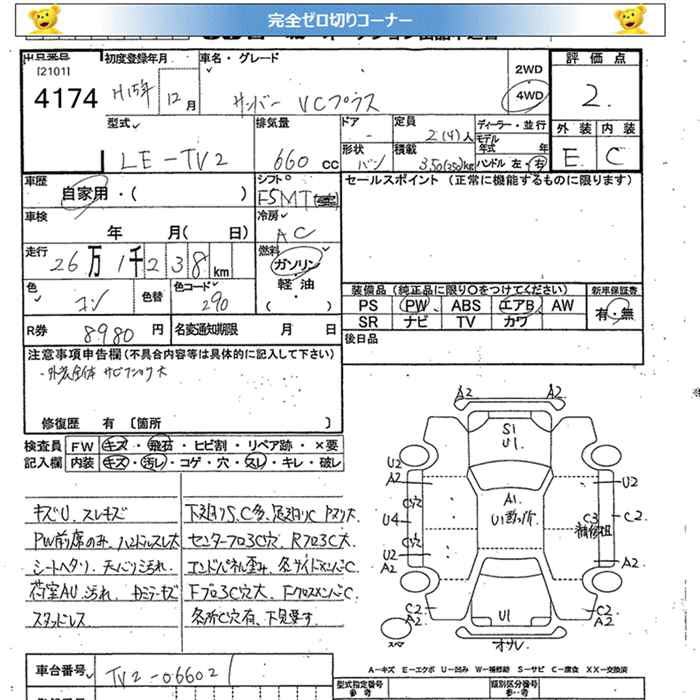 完全ゼロ切りコーナー
出品番号
[2101]
4174
初度登録年月
H15年 12月
車名・グレード
サンバー VCプラス
2WD
4WD
評価点
2.
外装 内装
E C
型式
LE-TV2
排気量
660 cc
ドア
-
定員
2(4)人
形状
バン
積載
350(250)kg
ディーラー・並行
モデル年式 年
ハンドル 左・右
車歴
自家用・( )
シフト
F5MT
車検
年 月( 日)
冷房
AC
走行
26万1千238km
燃料
ガソリン
軽油
( )
色
コン
色替
色コード
290
R券
8980円
名変通知期限 月 日
セールスポイント(正常に機能するものに限ります)
装備品(純正品に限り○をつけてください)
新車保証書
PS PW ABS エアB AW
SR ナビ TV カワ
有・無
後日品
注意事項申告欄(不具合内容等は具体的に記入して下さい)
・外装全体 サビ
修復歴 有 〔箇所 〕
検査員
記入欄
FW キズ・飛石・ヒビ割・リペア跡・×要
内装 キズ・汚レ・コゲ・穴・スレ・キレ・破レ
キズU.スレキズ
PW前席のみ.ハンドルスレ大
シートヘタリ.天バリ汚れ.
荷室AU.汚れ.
スタッドレス
下廻りS.C多.足廻りC
センターフロ3C穴.Rフロ3C大
エンドパネル歪み.各サイドメンバーC.
Fフロ3C穴大 FクロスメンバーC.
各所C穴有.下見要す
A2 A2
S1
U1.
U2
A2
U2
A2
A1
C穴
U4
C3
C2
C穴
補修粗
U2
A2
A2
C2
A2
C2
A2
U1
スペア
オサレ
A-キズ E-エクボ U-凹み W-補修跡 S-サビ C-腐食 XX-交換済
車台番号
TV2-066021
型式指定番号
参考
類別区分番号
参考